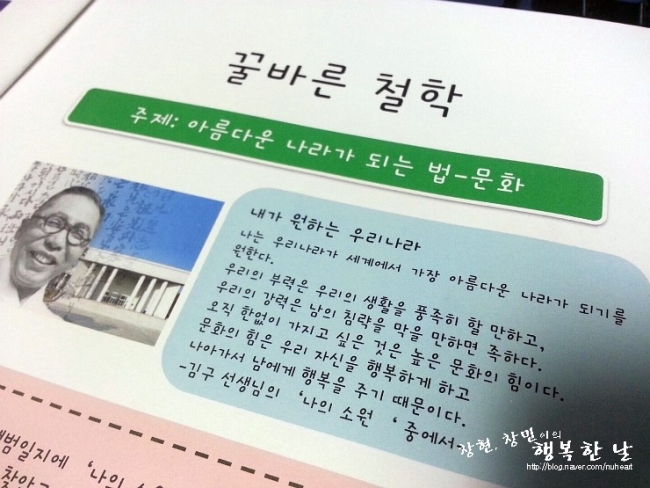 꿀바른 철학
주제: 아름다운 나라가 되는 법-문화
내가 원하는 우리나라
나는 우리나라가 세계에서 가장 아름다운 나라가 되기를
원한다.
우리의 부력은 우리의 생활을 풍족히 할 만하고,
우리의 강력은 남의 침략을 막을 만하면 족하다.
오직 한없이 가지고 싶은 것은 높은 문화의 힘이다.
문화의 힘은 우리 자신을 행복하게 하고
나아가서 남에게 행복을 주기 때문이다.
-김구 선생님의 '나의 소원 ' 중에서
백범일지에 '나의 소원
창현, 창민이의
행복한 날
http://blog.naver.com/nuheart